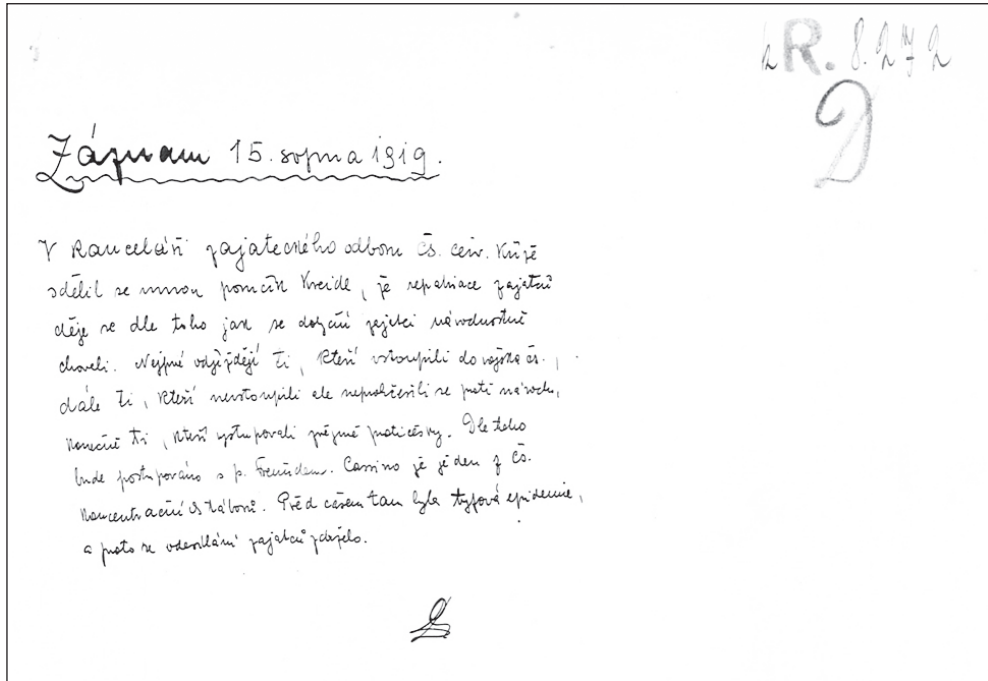 R. 8.272
D
Záznam 15. srpna 1919.
V kanceláři zajateckého odboru čs. červ. kříže
sdělil se mnou poručík Kreidl, že repatriace zajatců
děje se dle toho jak se dotyční zajatci národnostně
chovali. Nejprvé odjíždějí ti, kteří vstoupili do vojska čs.,
dále ti, kteří nevstoupili ale neprohřešili se proti národu,
konečně ti, kteří vystupovali přijmě protičesky. Dle toho
bude postupováno s p. Freundem. Cassino je jeden z čs.
koncentračních táborů. Před časem tam byla tyfová epidemie,
a proto se odesílání zajatců zdrželo.